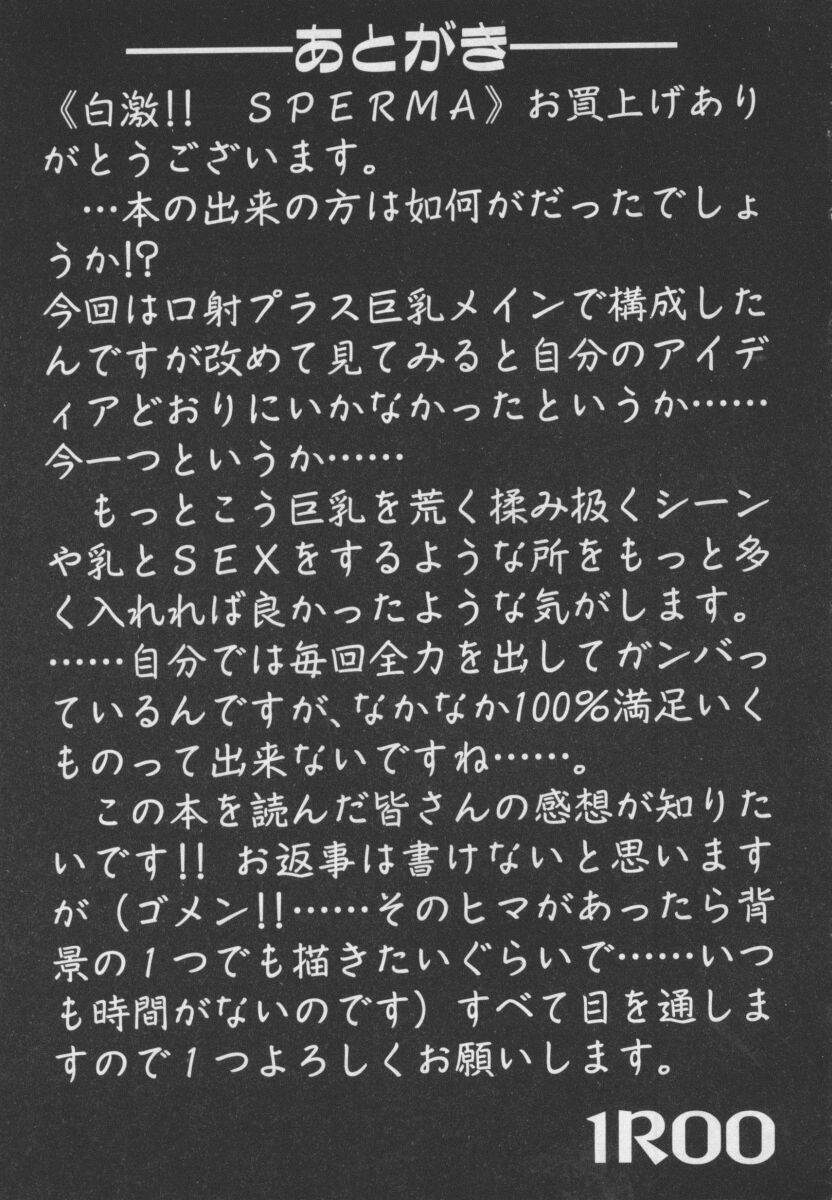 あとがき
《白激!!　SPERMA》お買上げあり
がとうございます。
　…本の出来の方は如何がだったでしょ
うか!?
今回は口射プラス巨乳メインで構成した
んですが改めて見てみると自分のアイデ
ィアどおりにいかなかったというか……
今一つというか……
　もっとこう巨乳を荒く揉み扱くシーン
や乳とSEXをするような所をもっと多
く入れれば良かったような気がします。
……自分では毎回全力を出してガンバっ
ているんですが、なかなか100%満足いく
ものって出来ないですね……。
　この本を読んだ皆さんの感想が知りた
いです!!　お返事は書けないと思います
が（ゴメン!!……そのヒマがあったら背
景の1つでも描きたいぐらいで……いつ
も時間がないのです）すべて目を通しま
すので1つよろしくお願いします。
1ROO